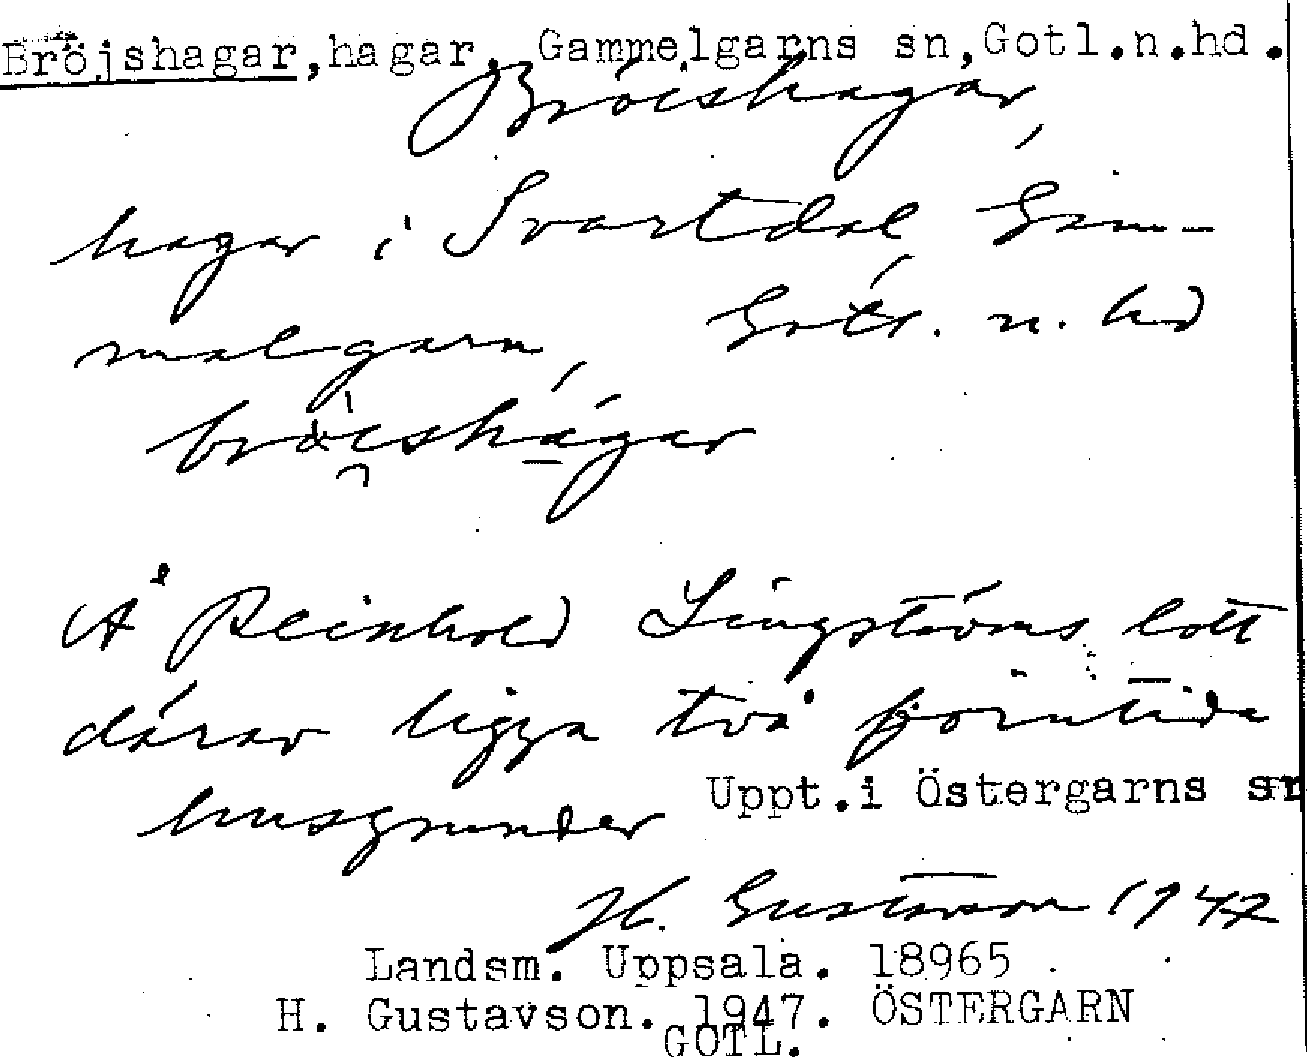 Bröjshagar, hagar, Gammelgarns sn, Gotl.n.hd.
Bröishagar,
hagar i Svartdal, Gam-
malgarn, Gotl. n. hd
bròi̯shāgar
Å Reinhold Lingströms lott
därav ligga två forntida
husgrunder Uppt.i Östergarns sn
H. Gustavson 1947
Landsm. Uppsala. 18965
H. Gustavson. 1947. ÖSTERGARN
GOTL.